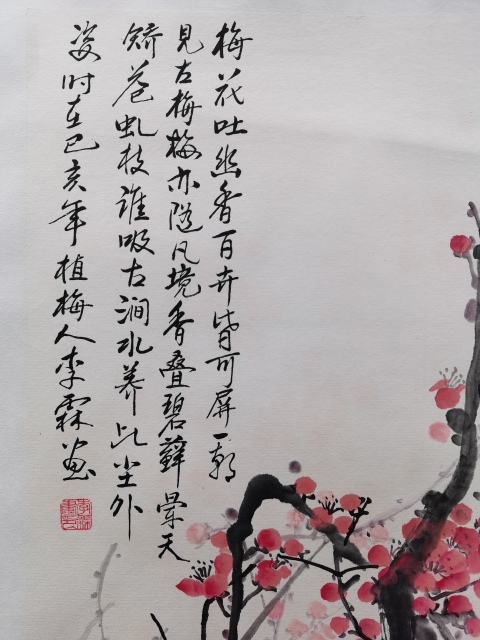 梅花吐幽香百卉皆可屏一朝
見古梅梅亦随凡境香叠碧藓晕天
矫苍虬枝谁吸古涧水养此尘外
姿时在己亥年植梅人李霖画